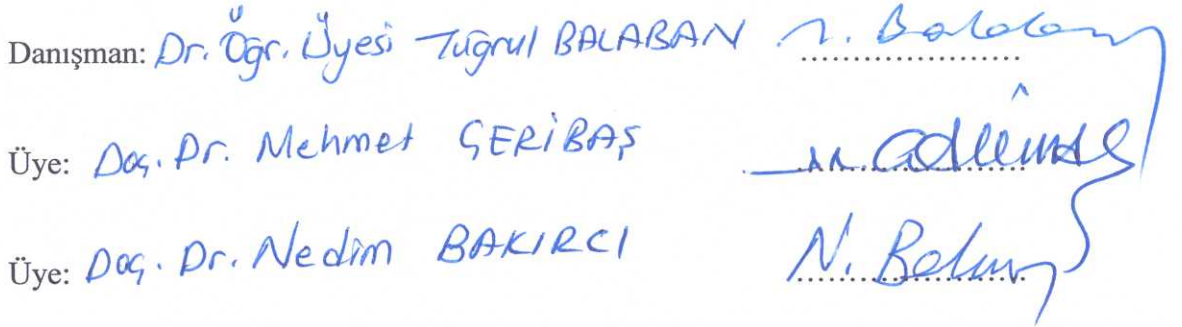 Danışman: Dr. Öğr. Üyesi Tuğrul BALABAN
Üye: Doç. Dr. Mehmet ÇERİBAŞ
Üye: Doç. Dr. Nedim BAKIRCI